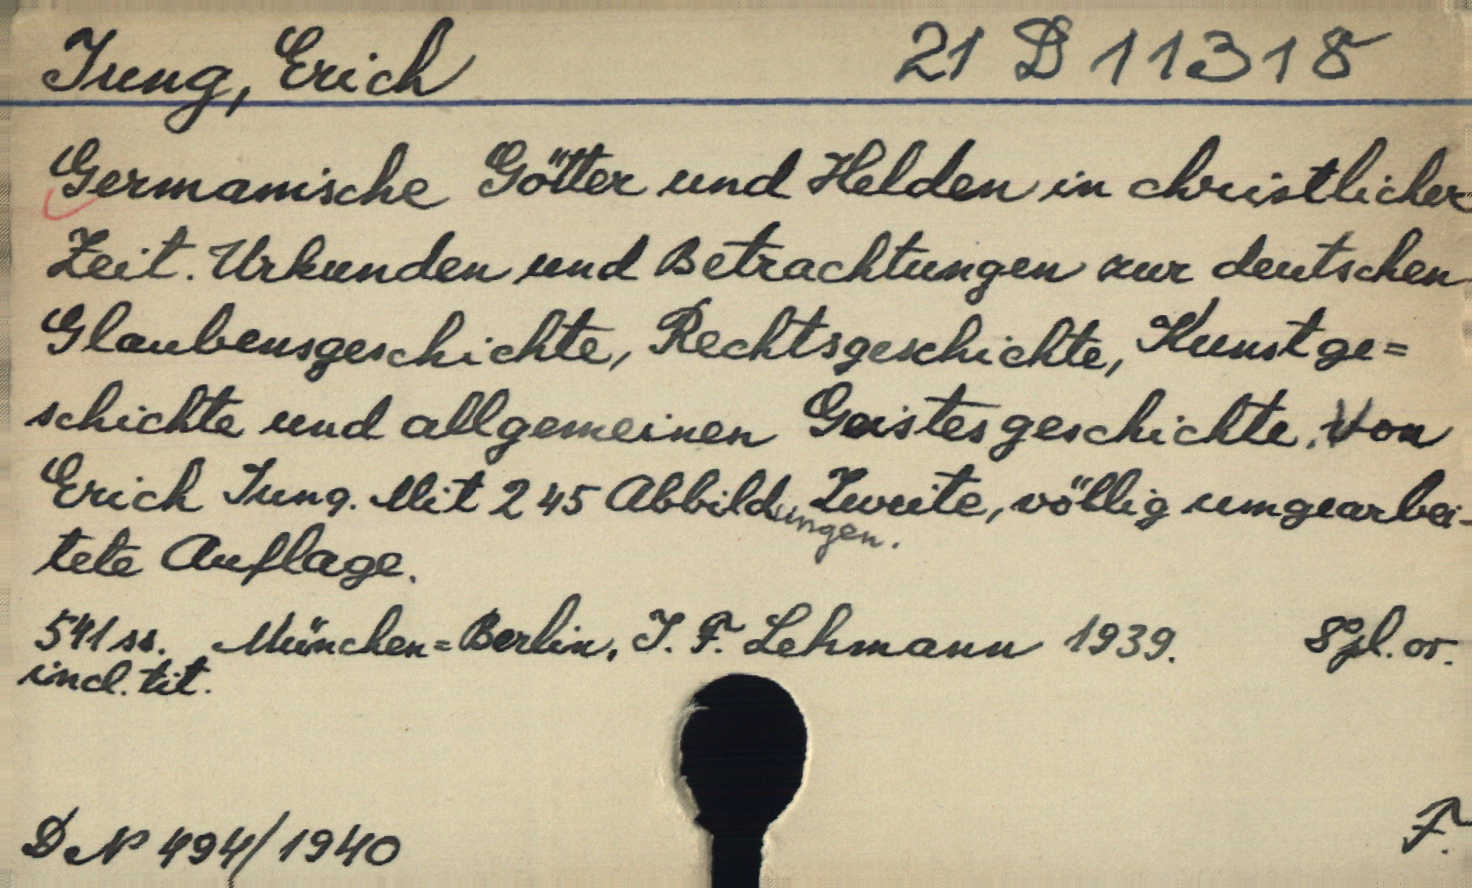 Jung, Erich 21 D 11318
Germanische Götter und Helden in christlicher
Zeit. Urkunden und Betrachtungen zur deutschen
Glaubensgeschichte, Rechtsgeschichte, Kunstge=
schichte und allgemeinen Geistesgeschichte. Von
Erich Jung. Mit 245 Abbildungen. Zweite, völlig umgearbei-
tete Auflage.
541 ss. München=Berlin, J. F. Lehmann 1939. 8° pl. or.
incl. tit.
D N 494/1940 F.